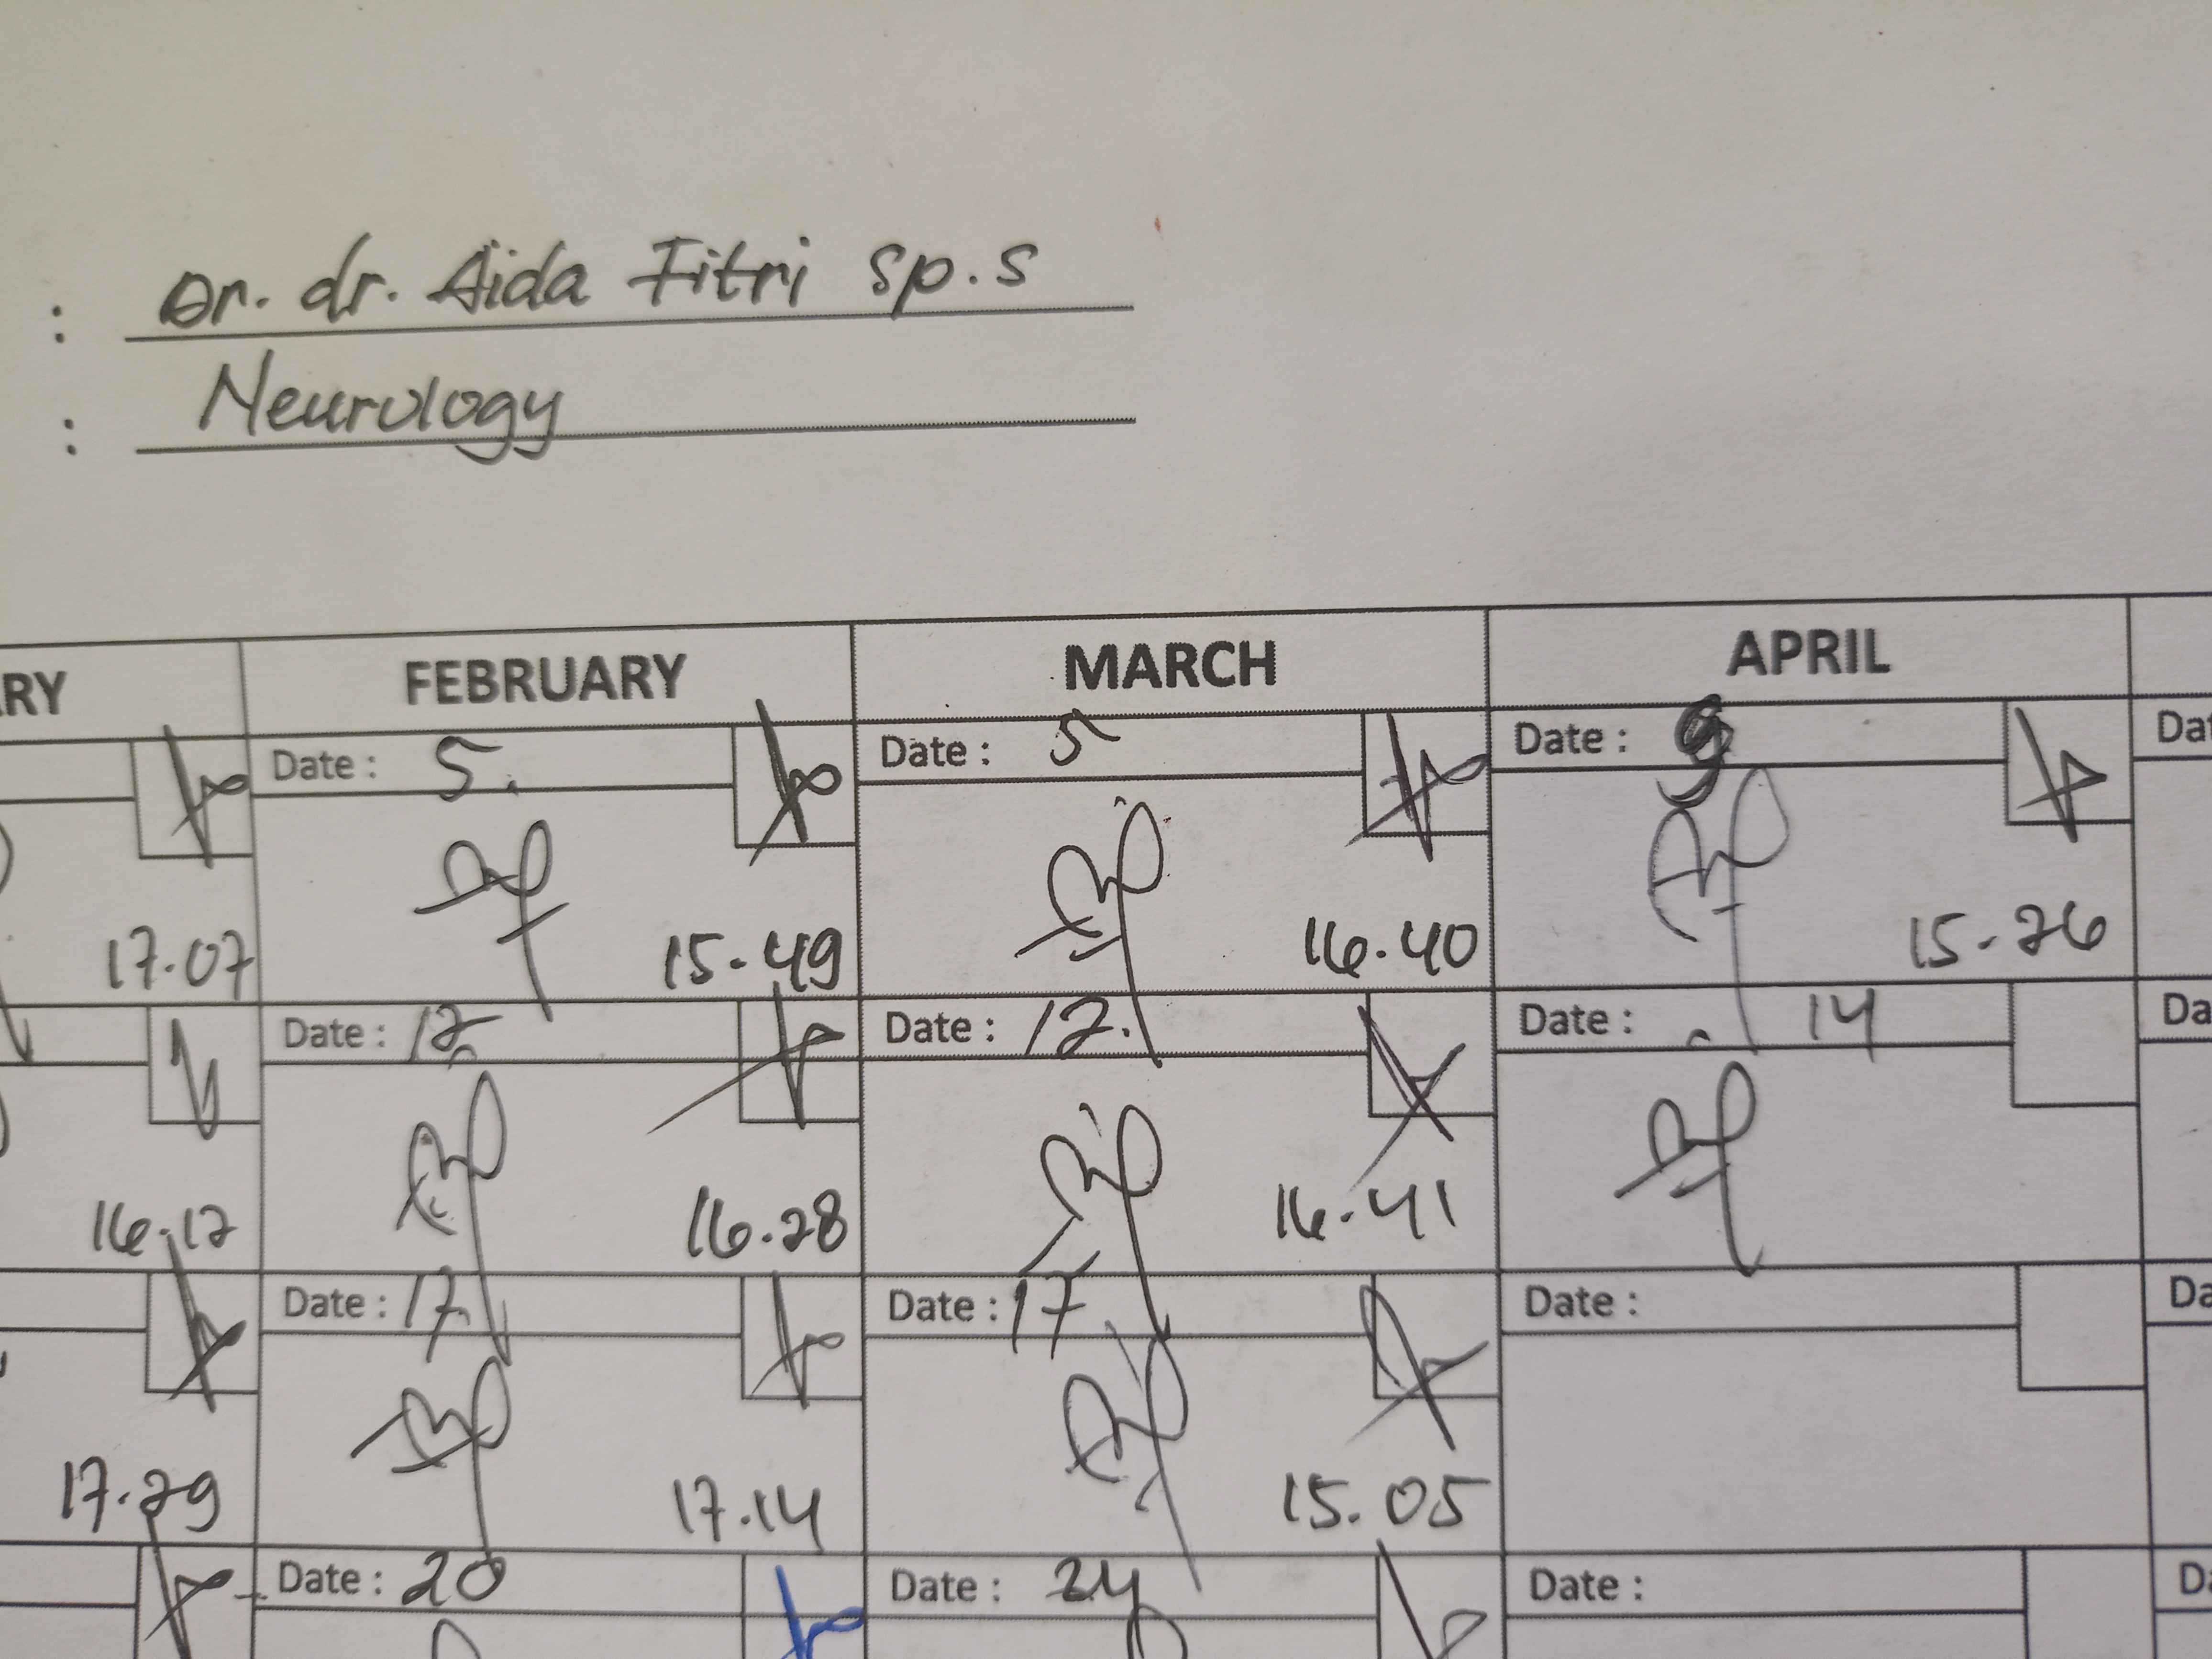 : Dr. dr. Aida Fitri sp.s
: Neurology
RY FEBRUARY MARCH APRIL
Date : 5. Date : 5 Date : 9 Da
17.07 15.49 16.40 15.26
Date : 12 Date : 12. Date : 14 Da
16.12 16.28 16.41
Date : 17 Date : 17 Date : Da
17.29 17.14 15.05
Date : 20 Date : 24 Date : Da